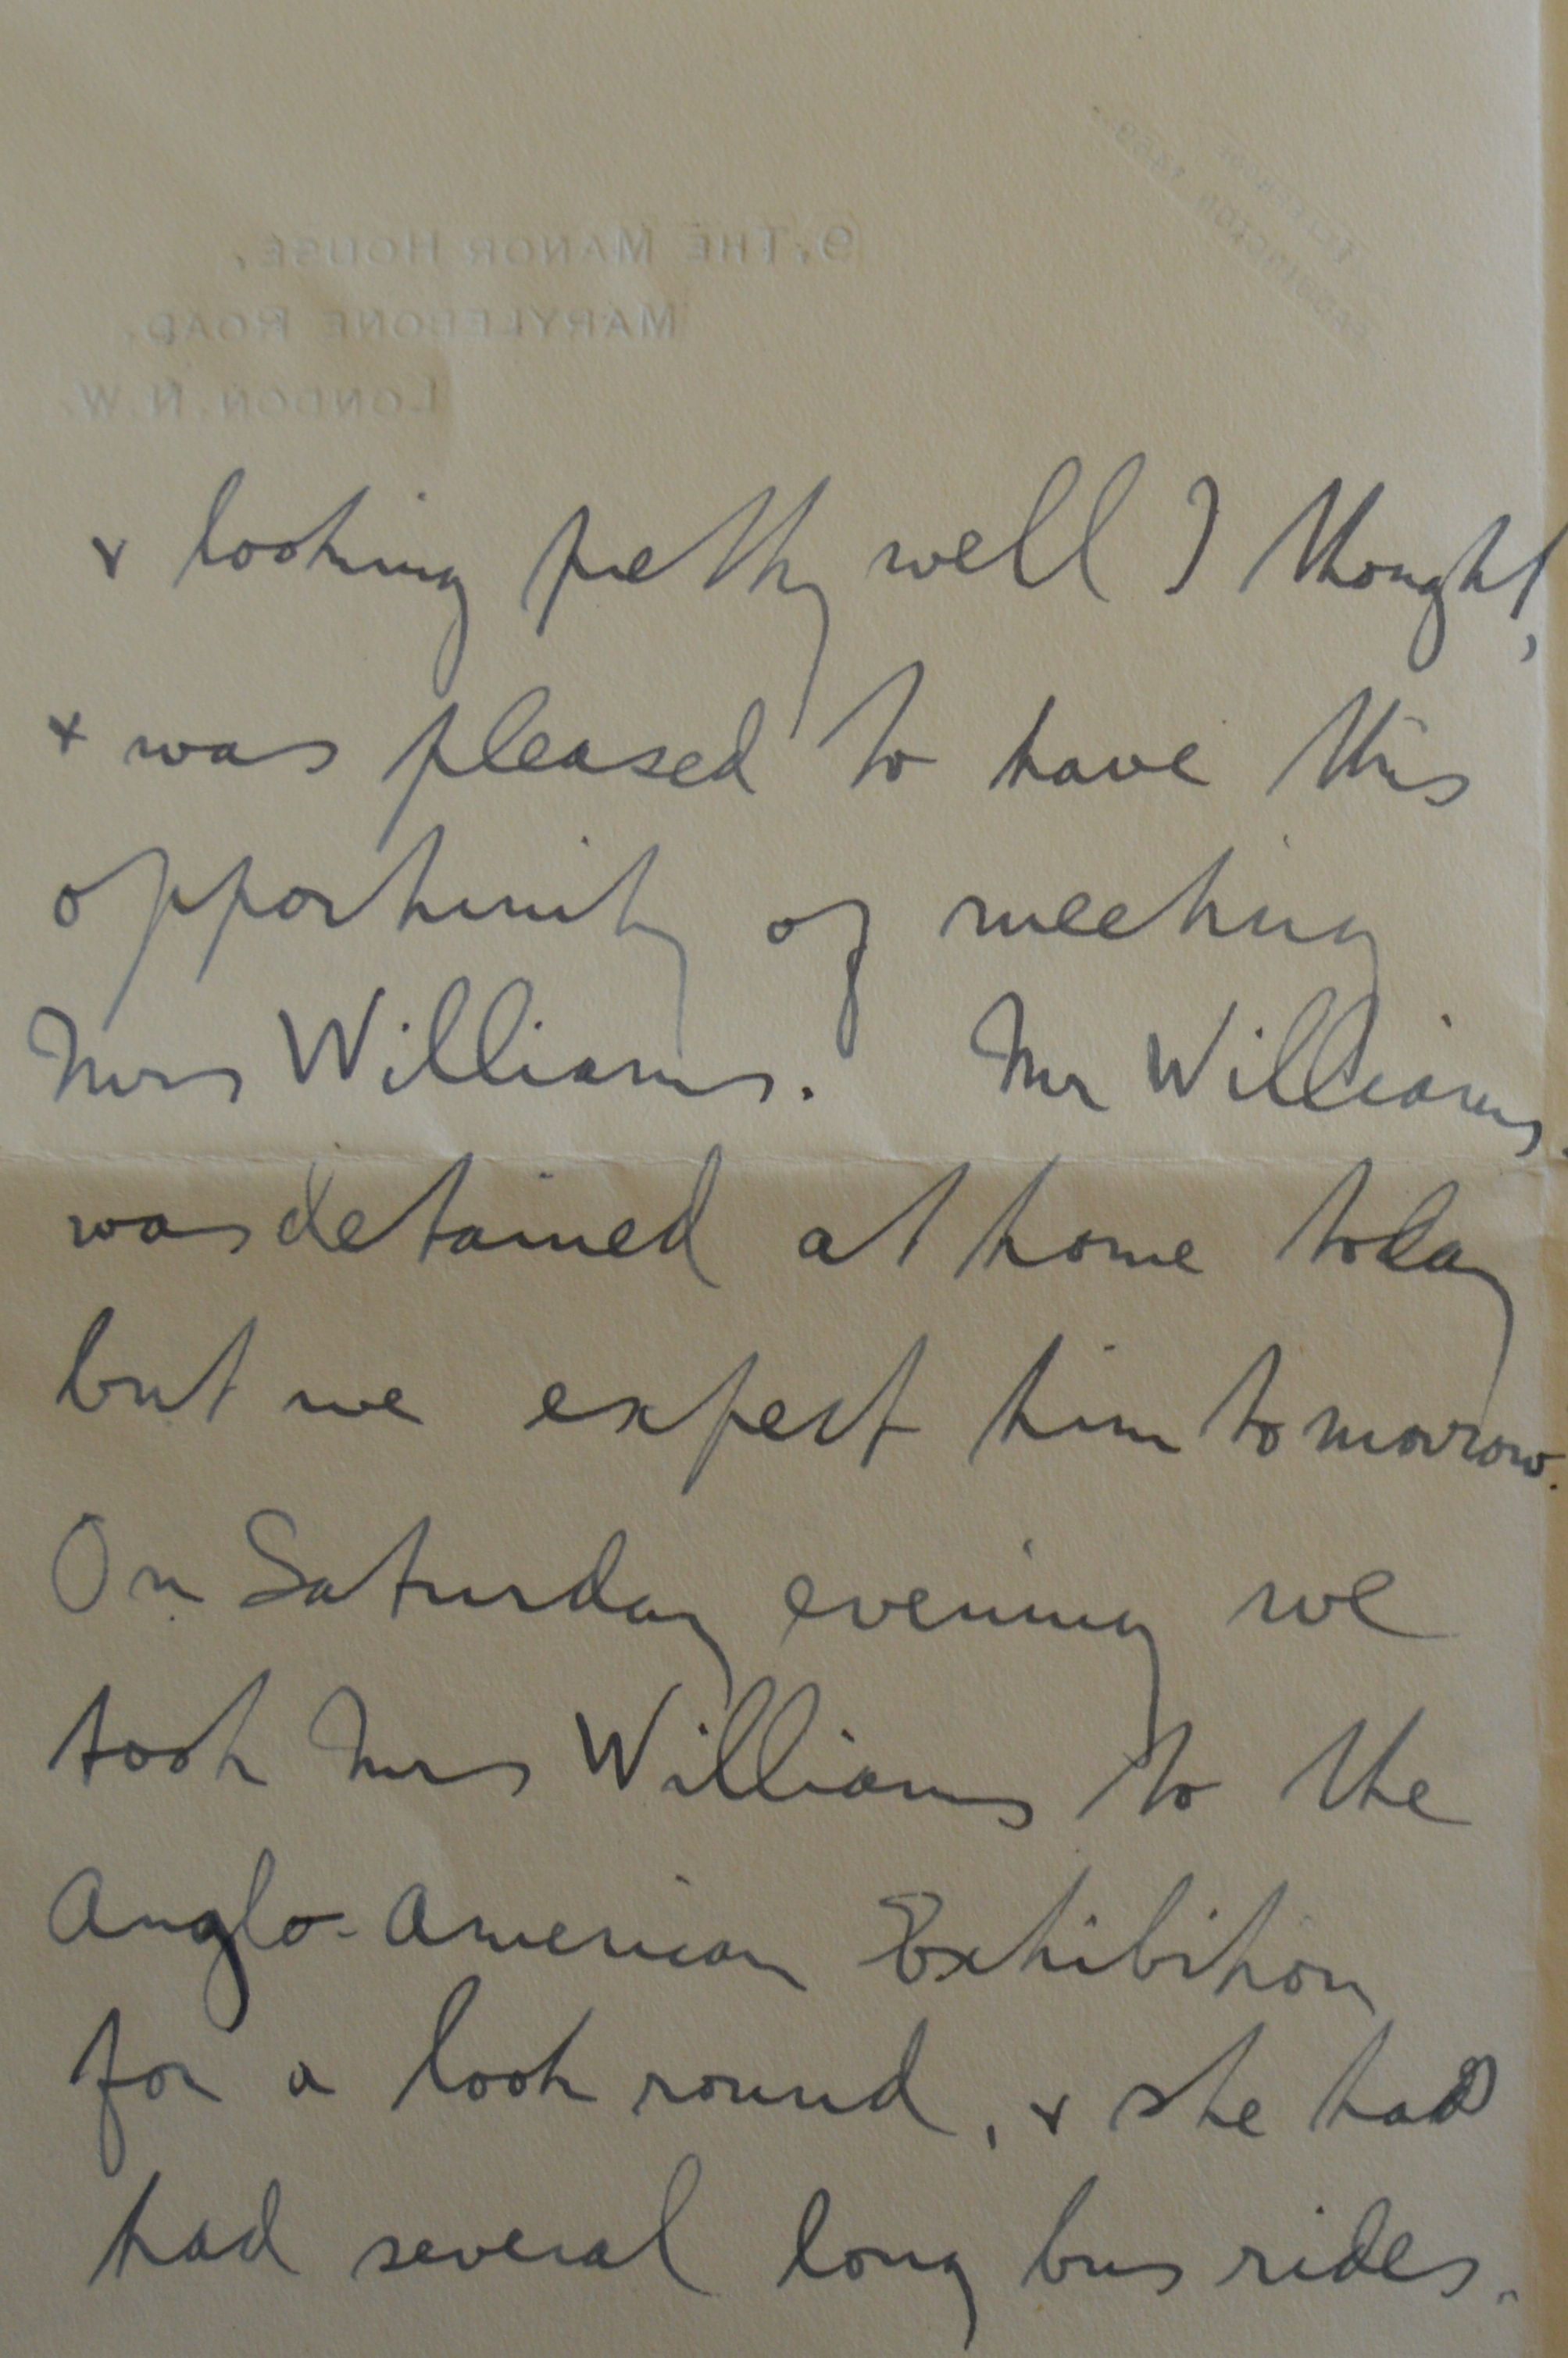 9, THE MANOR HOUSE,
MARYLEBONE ROAD.
LONDON. N.W.
+ looking pretty well I thought,
+ was pleased to have this
opportunity of meeting
Mrs Williams. Mr Williams
was detained at home today
but we expect him tomorrow.
On Saturday evening we
took Mrs Williams to the
Anglo-American Exhibition
for a look round, + she had
had several long bus rides.